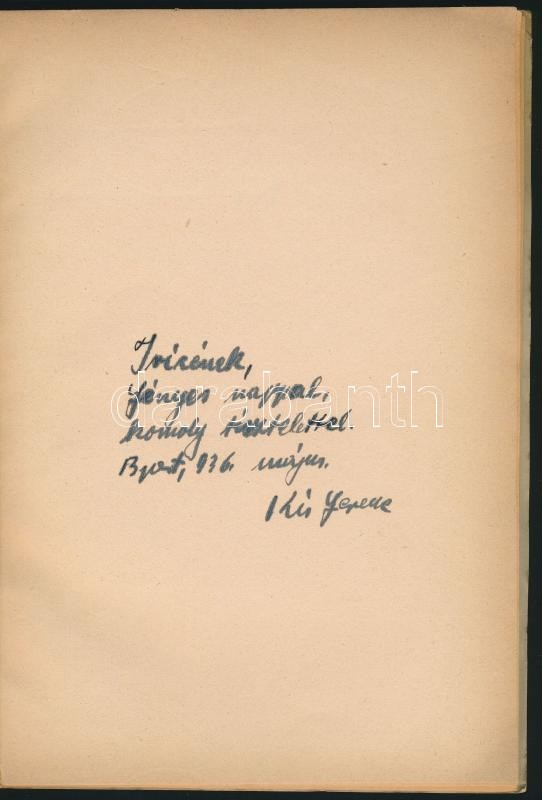 Ivicének,
fényes nappal,
komoly tisztelettel.
Bpest, 936. május.
Kis Ferenc
darabanth